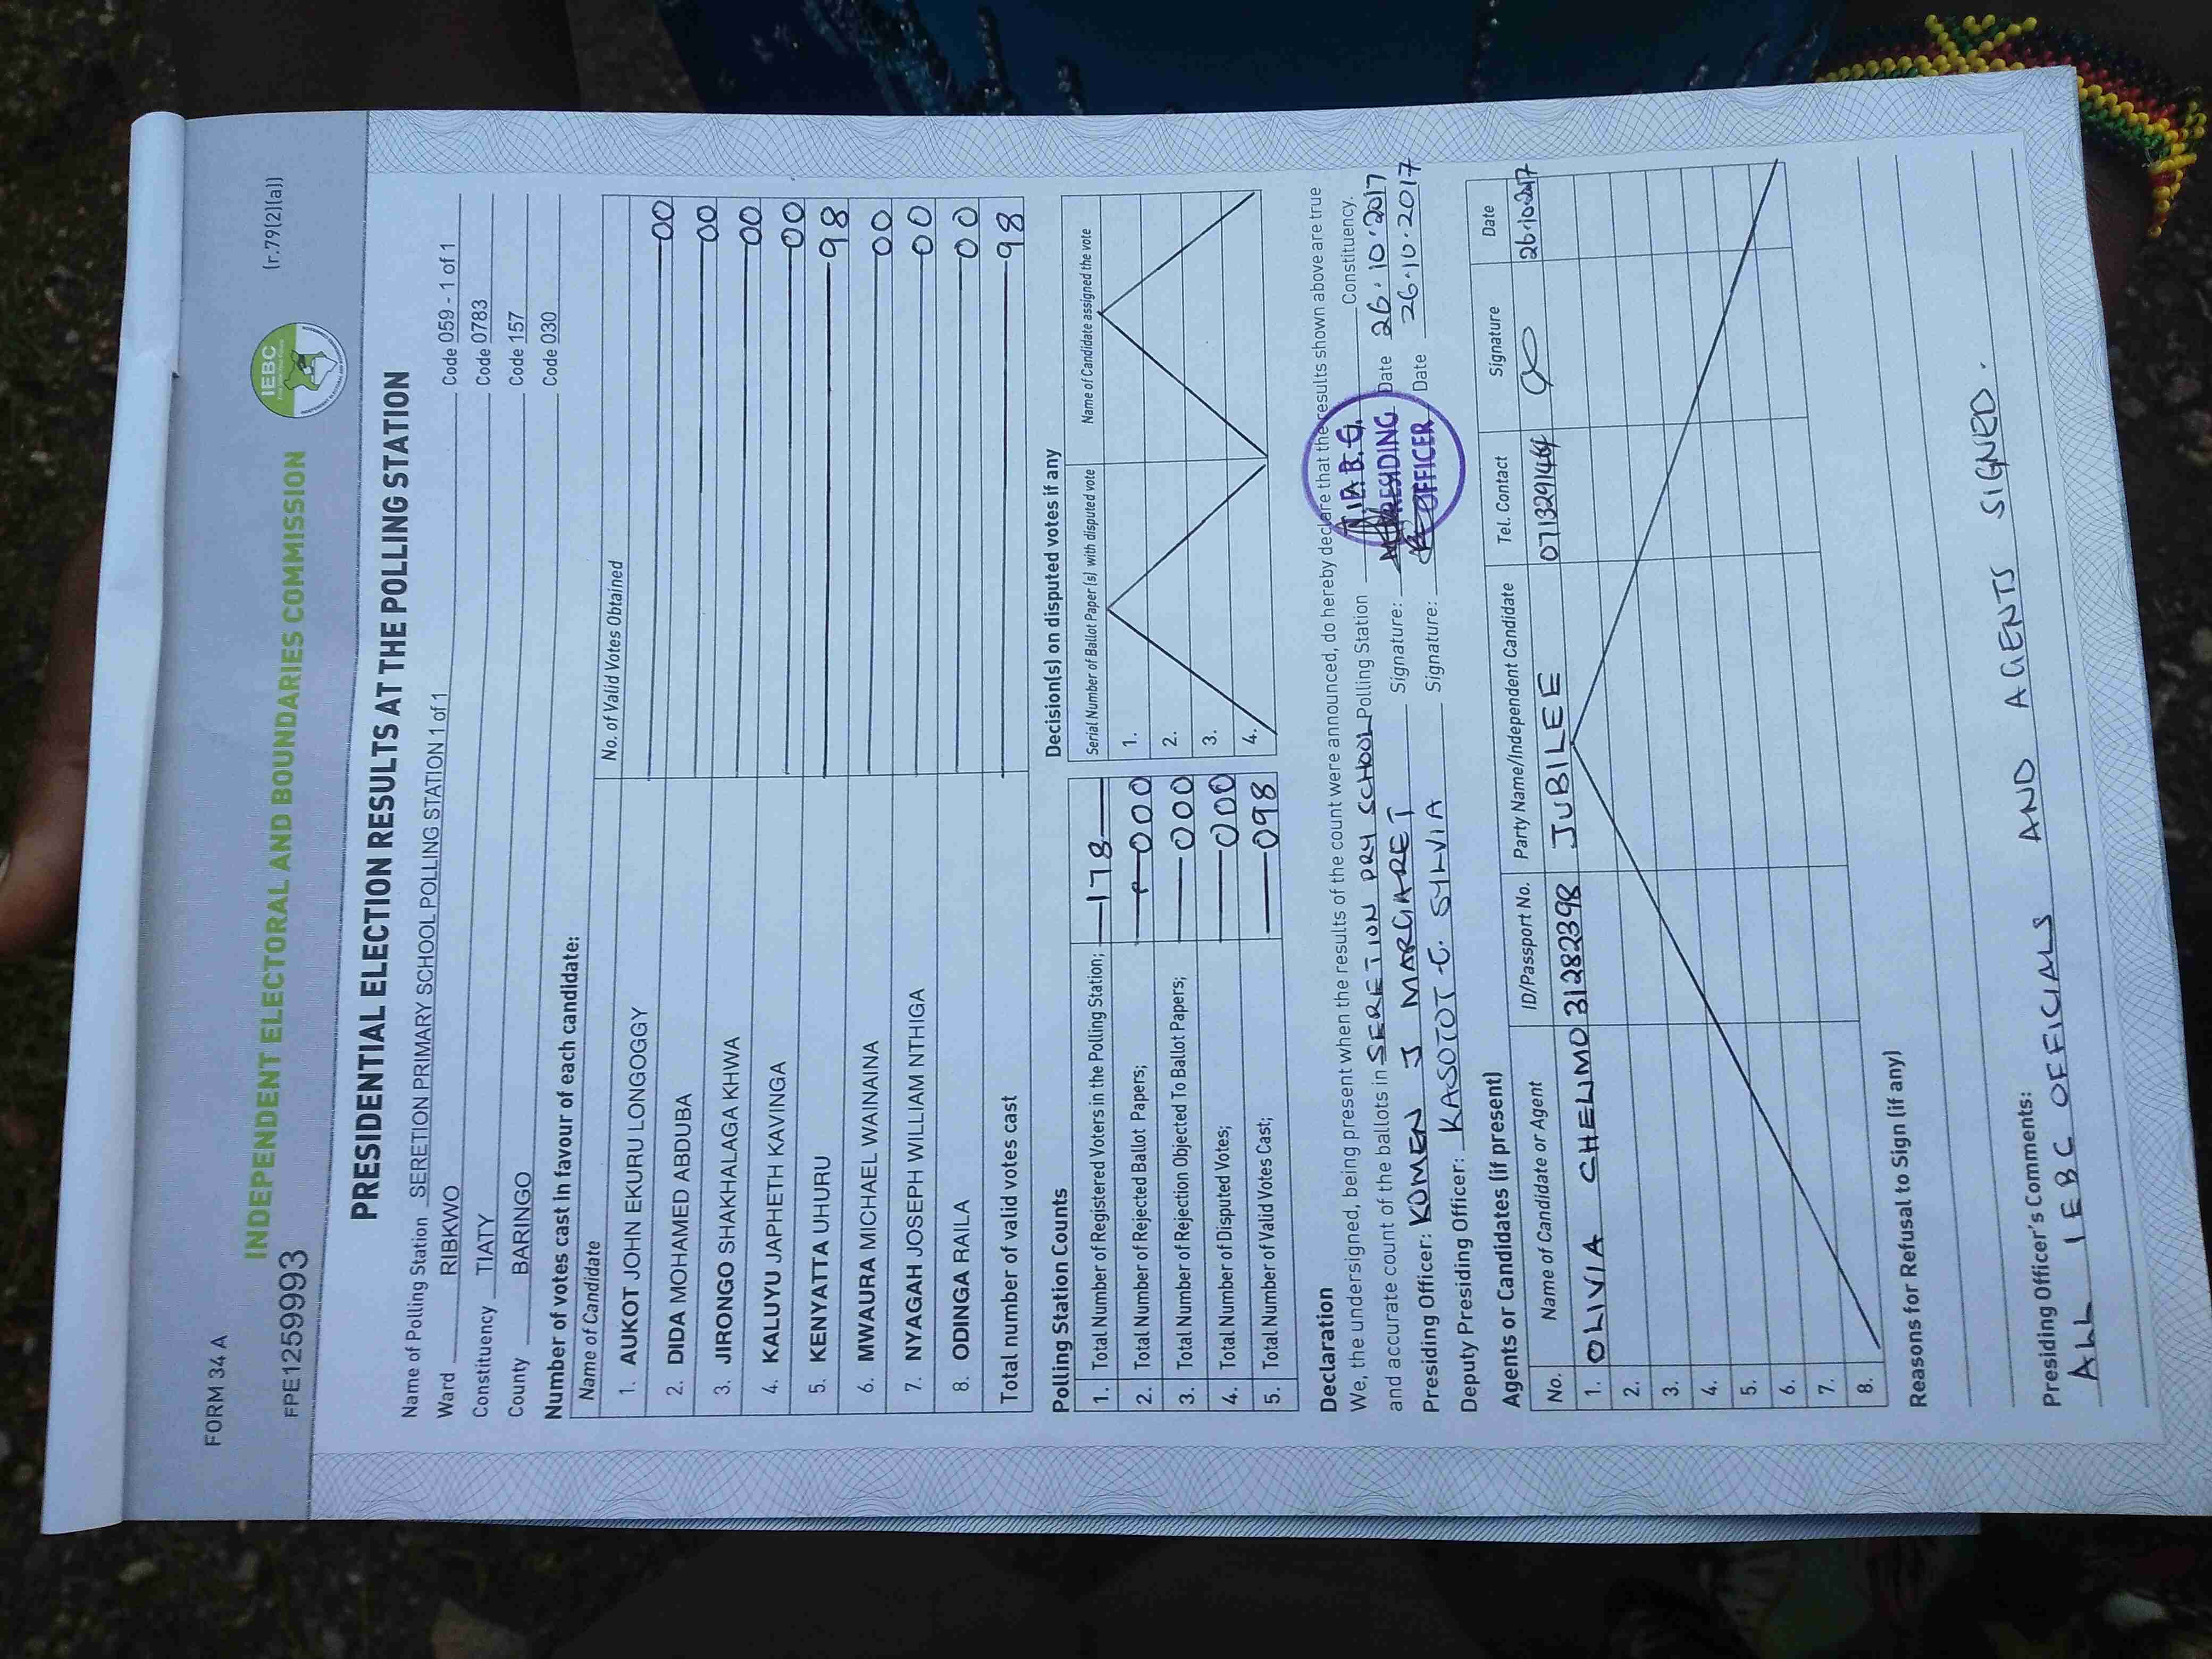 FORM 34 A
(r.79(2)(a))
IEBC
INDEPENDENT ELECTORAL AND BOUNDARIES COMMISSION
FPE1259993
PRESIDENTIAL ELECTION RESULTS AT THE POLLING STATION
Name of Polling Station SERETION PRIMARY SCHOOL POLLING STATION 1 of 1 Code 059 - 1 of 1
Ward RIBKWO Code 0783
Constituency TIATY Code 157
County BARINGO Code 030
Number of votes cast in favour of each candidate:
Name of Candidate No. of Valid Votes Obtained
1. AUKOT JOHN EKURU LONGOGGY 00
2. DIDA MOHAMED ABDUBA 00
3. JIRONGO SHAKHALAGA KHWA 00
4. KALUYU JAPHETH KAVINGA 00
5. KENYATTA UHURU 98
6. MWAURA MICHAEL WAINAINA 00
7. NYAGAH JOSEPH WILLIAM NTHIGA 00
8. ODINGA RAILA 00
Total number of valid votes cast 98
Polling Station Counts
1. Total Number of Registered Voters in the Polling Station; 178
2. Total Number of Rejected Ballot Papers; 000
3. Total Number of Rejection Objected To Ballot Papers; 000
4. Total Number of Disputed Votes; 000
5. Total Number of Valid Votes Cast; 098
Decision(s) on disputed votes if any
Serial Number of Ballot Paper (s) with disputed vote Name of Candidate assigned the vote
1.
2.
3.
4.
Declaration
We, the undersigned, being present when the results of the count were announced, do hereby declare that the results shown above are true
and accurate count of the ballots in SERETION PRY SCHOOL Polling Station Constituency.
Presiding Officer: KOMEN J MARGARET Signature: Date 26.10.2017
Deputy Presiding Officer: KASOTOT C. SYLVIA Signature: Date 26.10.2017
PRESIDING
OFFICER
Agents or Candidates (if present)
No. Name of Candidate or Agent ID/Passport No. Party Name/Independent Candidate Tel. Contact Signature Date
1. OLIVIA CHELIMO 31282398 JUBILEE 0713291464 26.10.2017
2.
3.
4.
5.
6.
7.
8.
Reasons for Refusal to Sign (if any)
Presiding Officer's Comments:
ALL IEBC OFFICIALS AND AGENTS SIGNED.